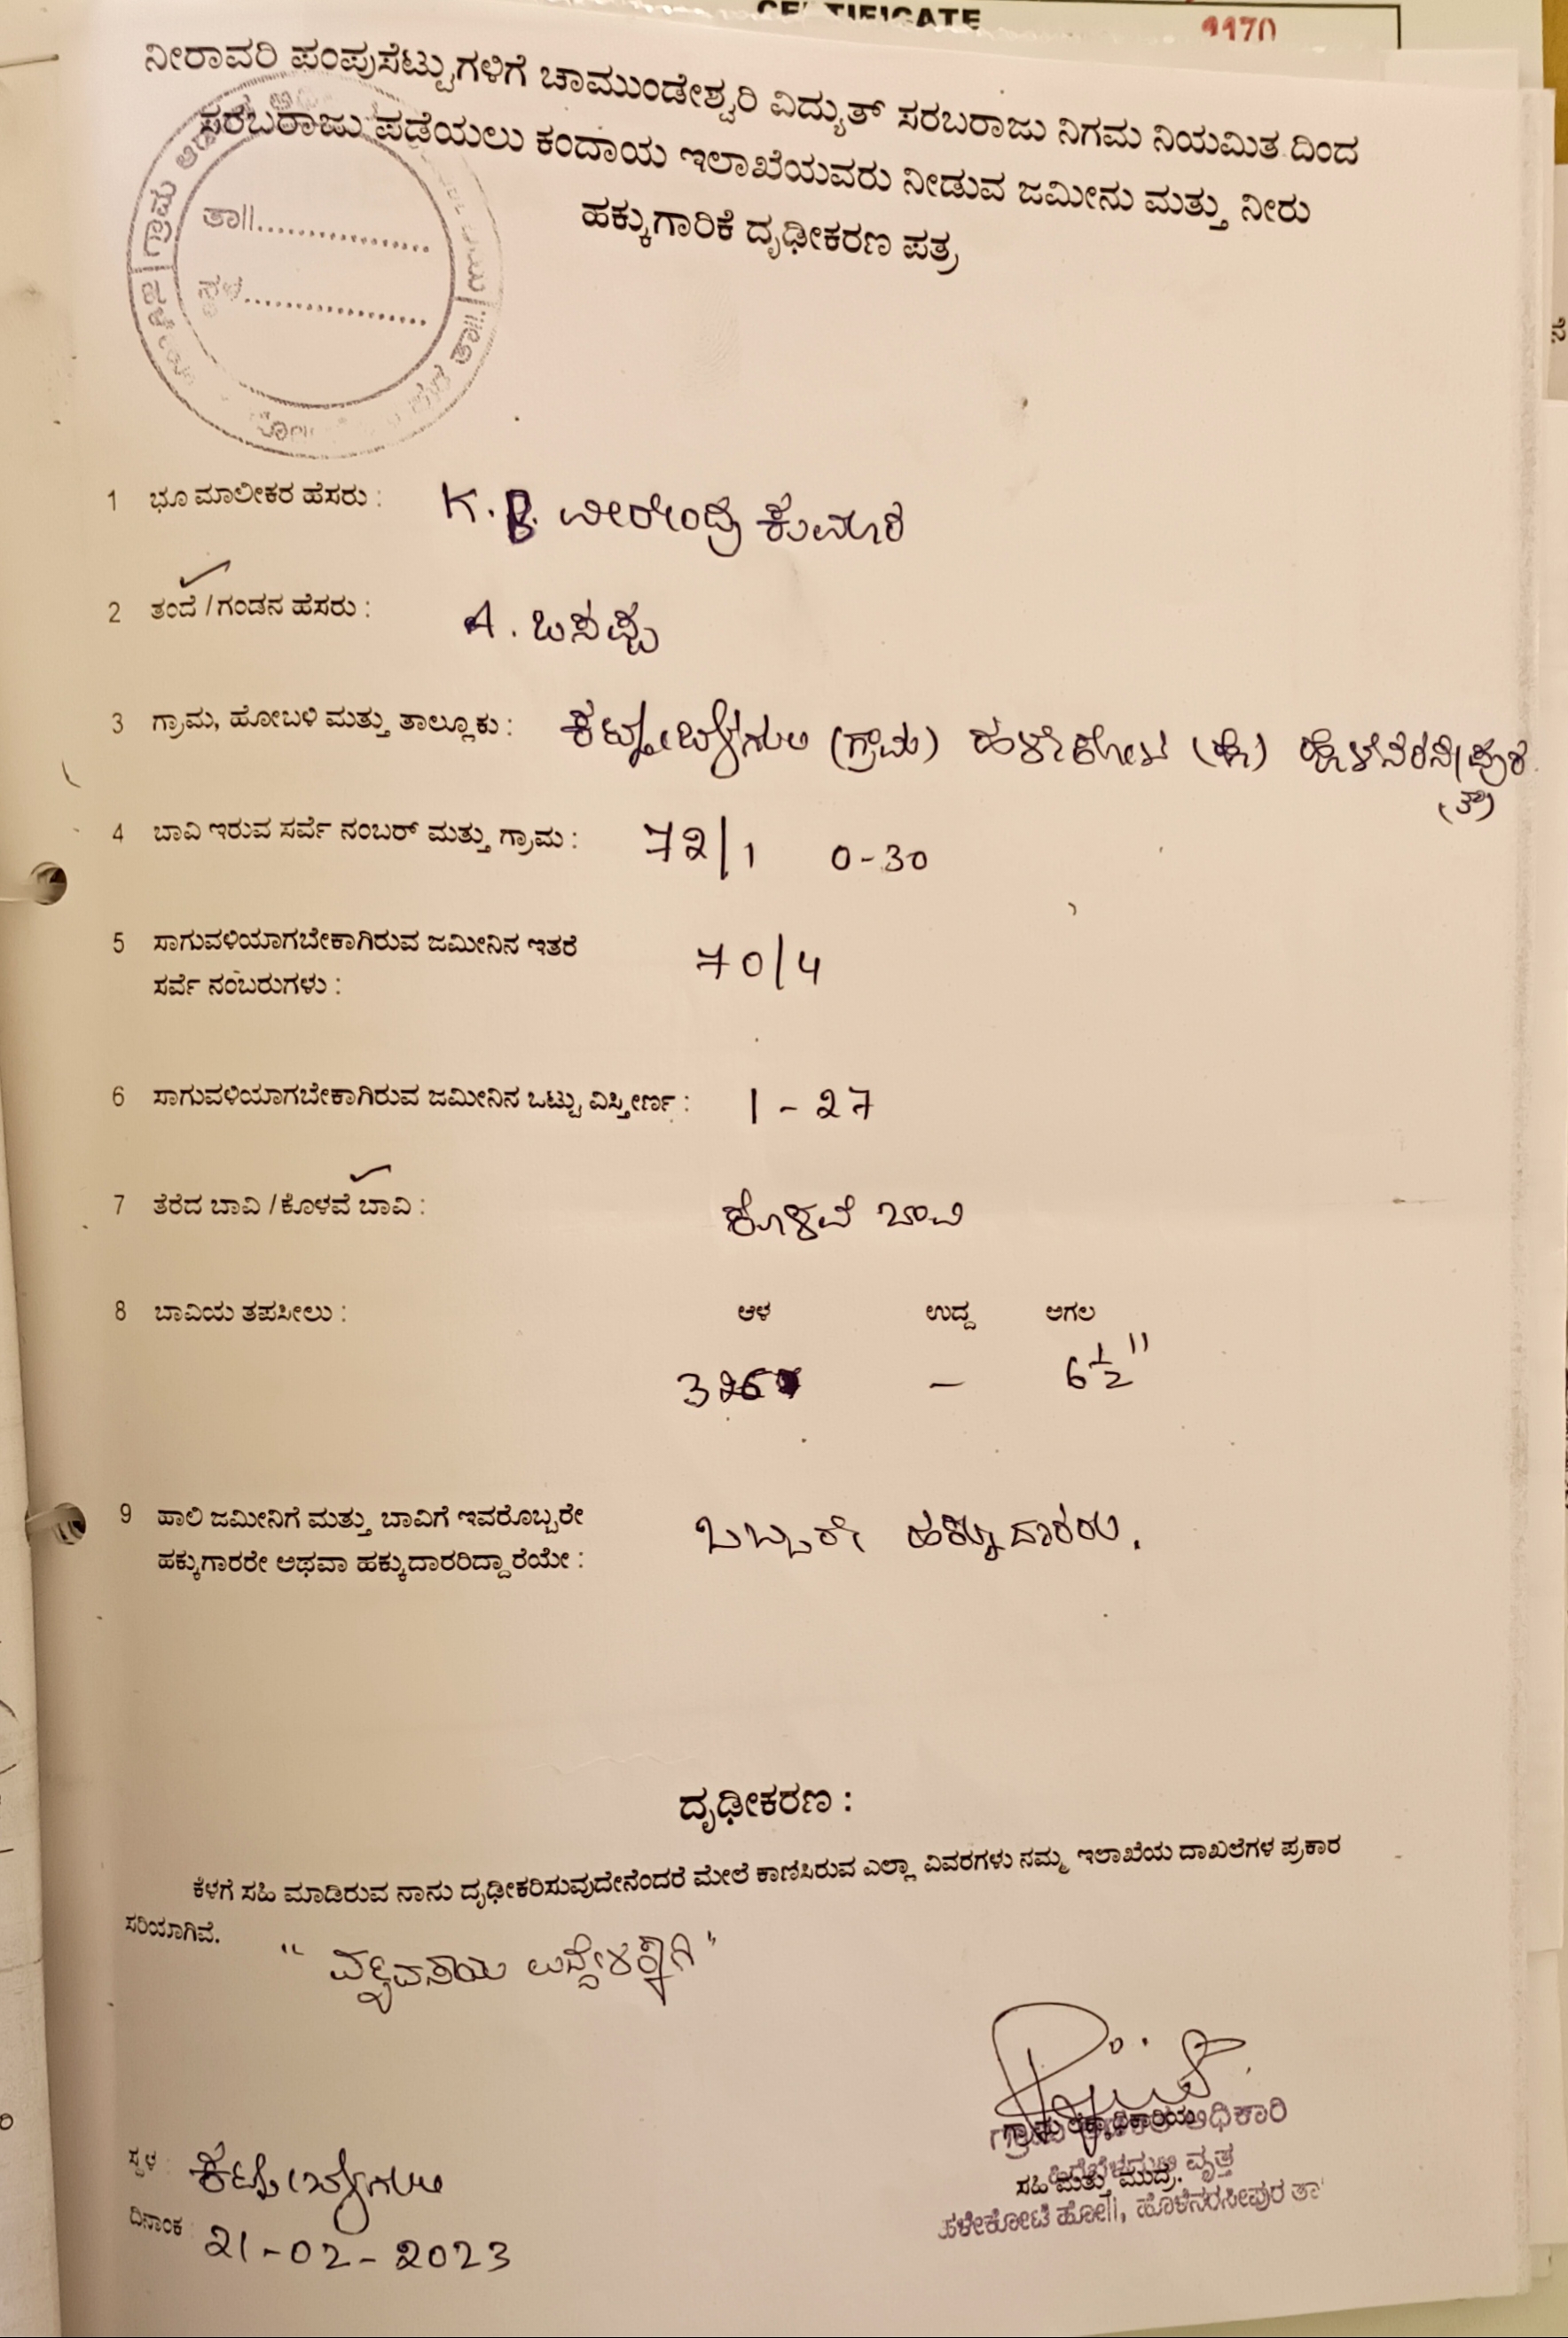 CERTIFICATE
ನೀರಾವರಿ ಪಂಪುಸೆಟ್ಟುಗಳಿಗೆ ಚಾಮುಂಡೇಶ್ವರಿ ವಿದ್ಯುತ್ ಸರಬರಾಜು ನಿಗಮ ನಿಯಮಿತ ದಿಂದ
ಸರಬರಾಜು ಪಡೆಯಲು ಕಂದಾಯ ಇಲಾಖೆಯವರು ನೀಡುವ ಜಮೀನು ಮತ್ತು ನೀರು
ಹಕ್ಕುಗಾರಿಕೆ ದೃಢೀಕರಣ ಪತ್ರ
ಗ್ರಾಮ
ತಾ||..................
1 ಭೂ ಮಾಲೀಕರ ಹೆಸರು : K.B. ವೀರೇಂದ್ರ ಕುಮಾರ
2 ತಂದೆ / ಗಂಡನ ಹೆಸರು : A. ಬಸಪ್ಪ
3 ಗ್ರಾಮ, ಹೋಬಳಿ ಮತ್ತು ತಾಲ್ಲೂಕು : (ಗ್ರಾಮ) ಹಳೇಕೋಟೆ (ಹೋ)
(ತಾ)
4 ಬಾವಿ ಇರುವ ಸರ್ವೆ ನಂಬರ್ ಮತ್ತು ಗ್ರಾಮ : 72/1 0-30
5 ಸಾಗುವಳಿಯಾಗಬೇಕಾಗಿರುವ ಜಮೀನಿನ ಇತರೆ
ಸರ್ವೆ ನಂಬರುಗಳು : 70/4
6 ಸಾಗುವಳಿಯಾಗಬೇಕಾಗಿರುವ ಜಮೀನಿನ ಒಟ್ಟು ವಿಸ್ತೀರ್ಣ : 1 - 27
7 ತೆರೆದ ಬಾವಿ / ಕೊಳವೆ ಬಾವಿ : ಕೊಳವೆ ಬಾವಿ
8 ಬಾವಿಯ ತಪಸೀಲು : ಆಳ ಉದ್ದ ಅಗಲ
– 6 1/2"
9 ಹಾಲಿ ಜಮೀನಿಗೆ ಮತ್ತು ಬಾವಿಗೆ ಇವರೊಬ್ಬರೇ
ಹಕ್ಕುಗಾರರೇ ಅಥವಾ ಹಕ್ಕುದಾರರಿದ್ದಾರೆಯೇ : ಒಬ್ಬರೇ ಹಕ್ಕುದಾರರು.
ದೃಢೀಕರಣ :
ಕೆಳಗೆ ಸಹಿ ಮಾಡಿರುವ ನಾನು ದೃಢೀಕರಿಸುವುದೇನೆಂದರೆ ಮೇಲೆ ಕಾಣಿಸಿರುವ ಎಲ್ಲಾ ವಿವರಗಳು ನಮ್ಮ ಇಲಾಖೆಯ ದಾಖಲೆಗಳ ಪ್ರಕಾರ
ಸರಿಯಾಗಿವೆ.
" ವ್ಯವಸಾಯ ಉದ್ದೇಶಕ್ಕಾಗಿ "
ಗ್ರಾಮ ಲೆಕ್ಕಾಧಿಕಾರಿಯ
ಅಧಿಕಾರಿ
ವೃತ್ತ
ಸಹಿ ಮತ್ತು ಮುದ್ರೆ.
ಹಳೇಕೋಟೆ ಹೋ||, ಹೊಳೆನರಸೀಪುರ ತಾ
ಸ್ಥಳ :
ದಿನಾಂಕ : 21-02-2023